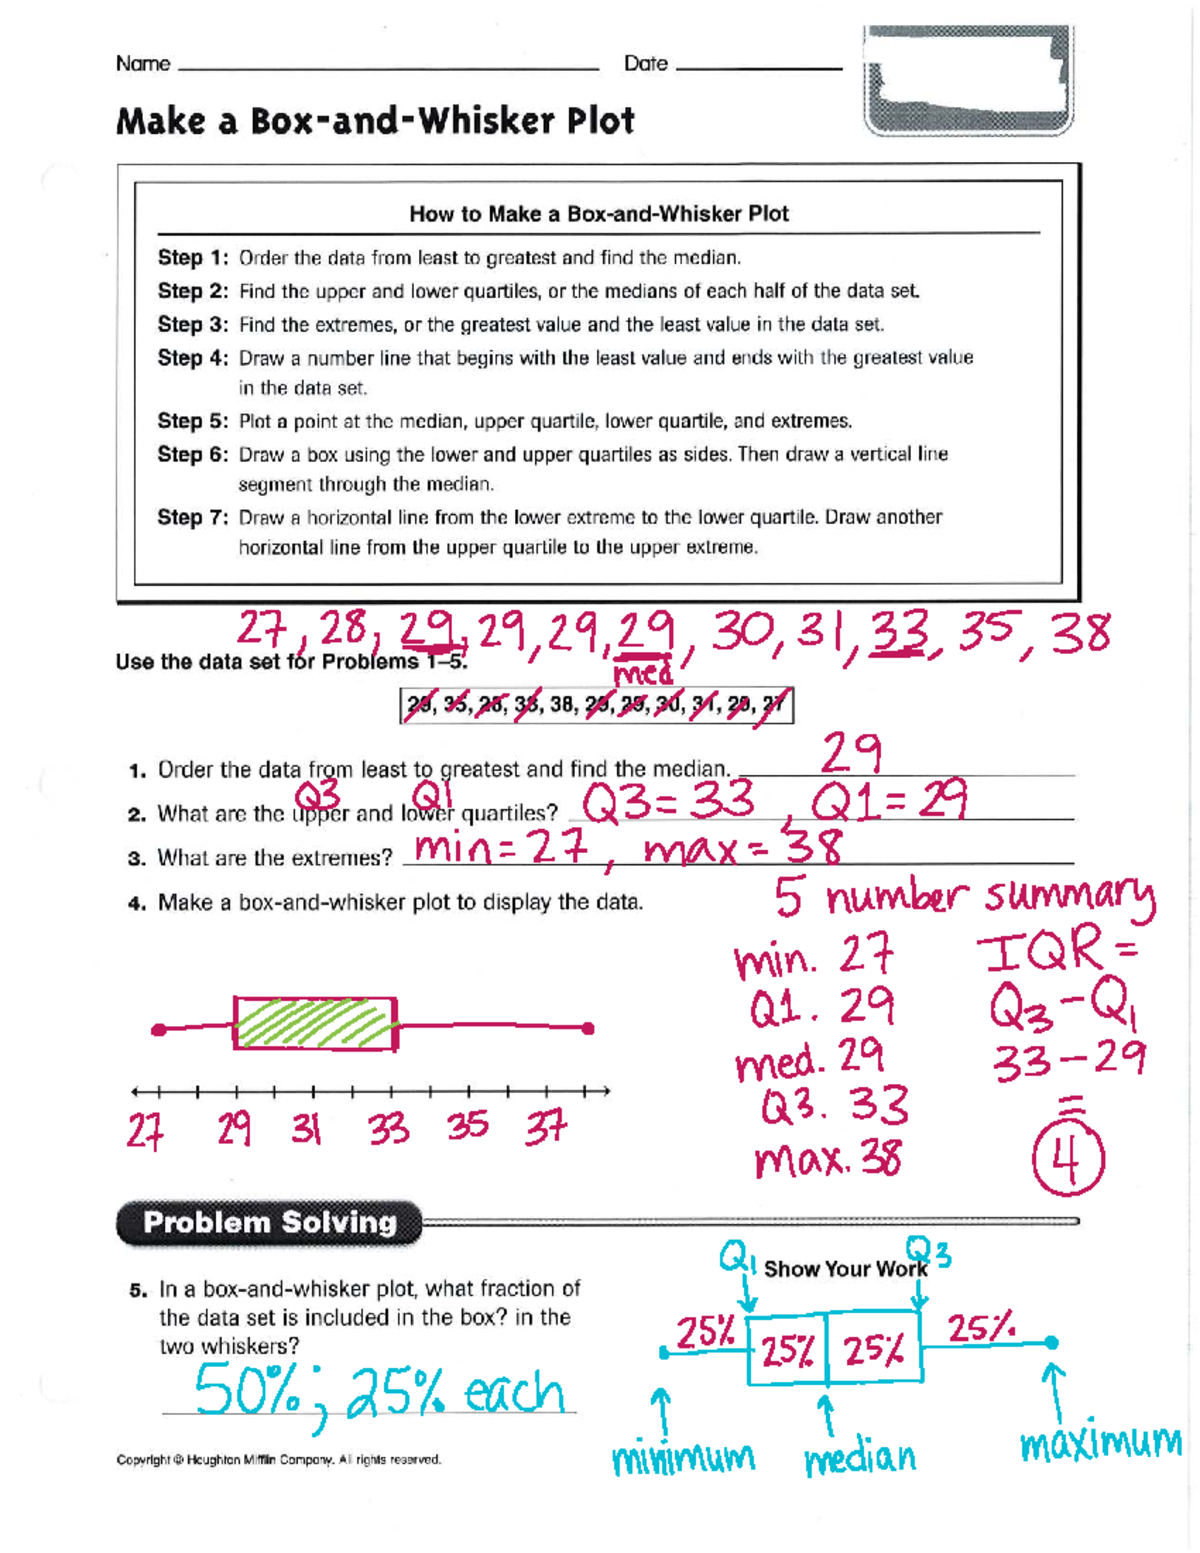 Name Date
Make a Box-and-Whisker Plot
How to Make a Box-and-Whisker Plot
Step 1: Order the data from least to greatest and find the median.
Step 2: Find the upper and lower quartiles, or the medians of each half of the data set.
Step 3: Find the extremes, or the greatest value and the least value in the data set.
Step 4: Draw a number line that begins with the least value and ends with the greatest value
in the data set.
Step 5: Plot a point at the median, upper quartile, lower quartile, and extremes.
Step 6: Draw a box using the lower and upper quartiles as sides. Then draw a vertical line
segment through the median.
Step 7: Draw a horizontal line from the lower extreme to the lower quartile. Draw another
horizontal line from the upper quartile to the upper extreme.
27, 28, 29, 29, 29, 29, 30, 31, 33, 35, 38
Use the data set for Problems 1–5.
med
35, 38, 30, 31, 27
1. Order the data from least to greatest and find the median. 29
Q3 Q1
2. What are the upper and lower quartiles? Q3=33, Q1=29
3. What are the extremes? min=27, max=38
4. Make a box-and-whisker plot to display the data.
5 number summary
min. 27
Q1. 29
med. 29
Q3. 33
max. 38
IQR =
Q3-Q1
33-29
=
4
27 29 31 33 35 37
Problem Solving
5. In a box-and-whisker plot, what fraction of
the data set is included in the box? in the
two whiskers?
50%; 25% each
Q1 Q3
Show Your Work
25% 25% 25% 25%
minimum median maximum
Copyright © Houghton Mifflin Company. All rights reserved.